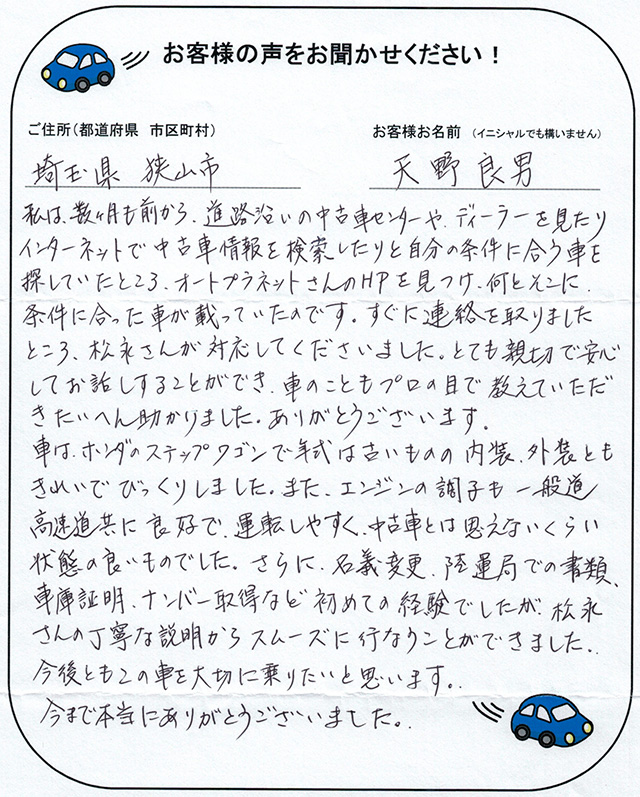 お客様の声をお聞かせください！
ご住所（都道府県　市区町村）
お客様お名前　（イニシャルでも構いません）
埼玉県　狭山市
天野良男
私は、数ヶ月も前から、進路沿いの中古車センターや、ディーラーを見たり
インターネットで中古車情報を検索したりと自分の条件に合う車を
探していたところ、オートプラネットさんのHPを見つけ、何とそこに、
条件に合った車が載っていたのです。すぐに連絡を取りました
ところ、松永さんが対応してくださいました。とても親切で安心
してお話しすることができ、車のこともプロの目で教えていただ
きたいへん助かりました。ありがとうございます。
車は、ホンダのステップワゴンで年式は古いものの内装、外装とも
きれいでびっくりしました。また、エンジンの調子も一般道
高速道共に良好で、運転しやすく、中古車とは思えないくらい
状態の良いものでした。さらに、名義変更、陸運局での書類、
車庫証明、ナンバー取得など初めての経験でしたが、松永
さんの丁寧な説明からスムーズに行なうことができました。
今後ともこの車を大切に乗りたいと思います。
今まで本当にありがとうございました。